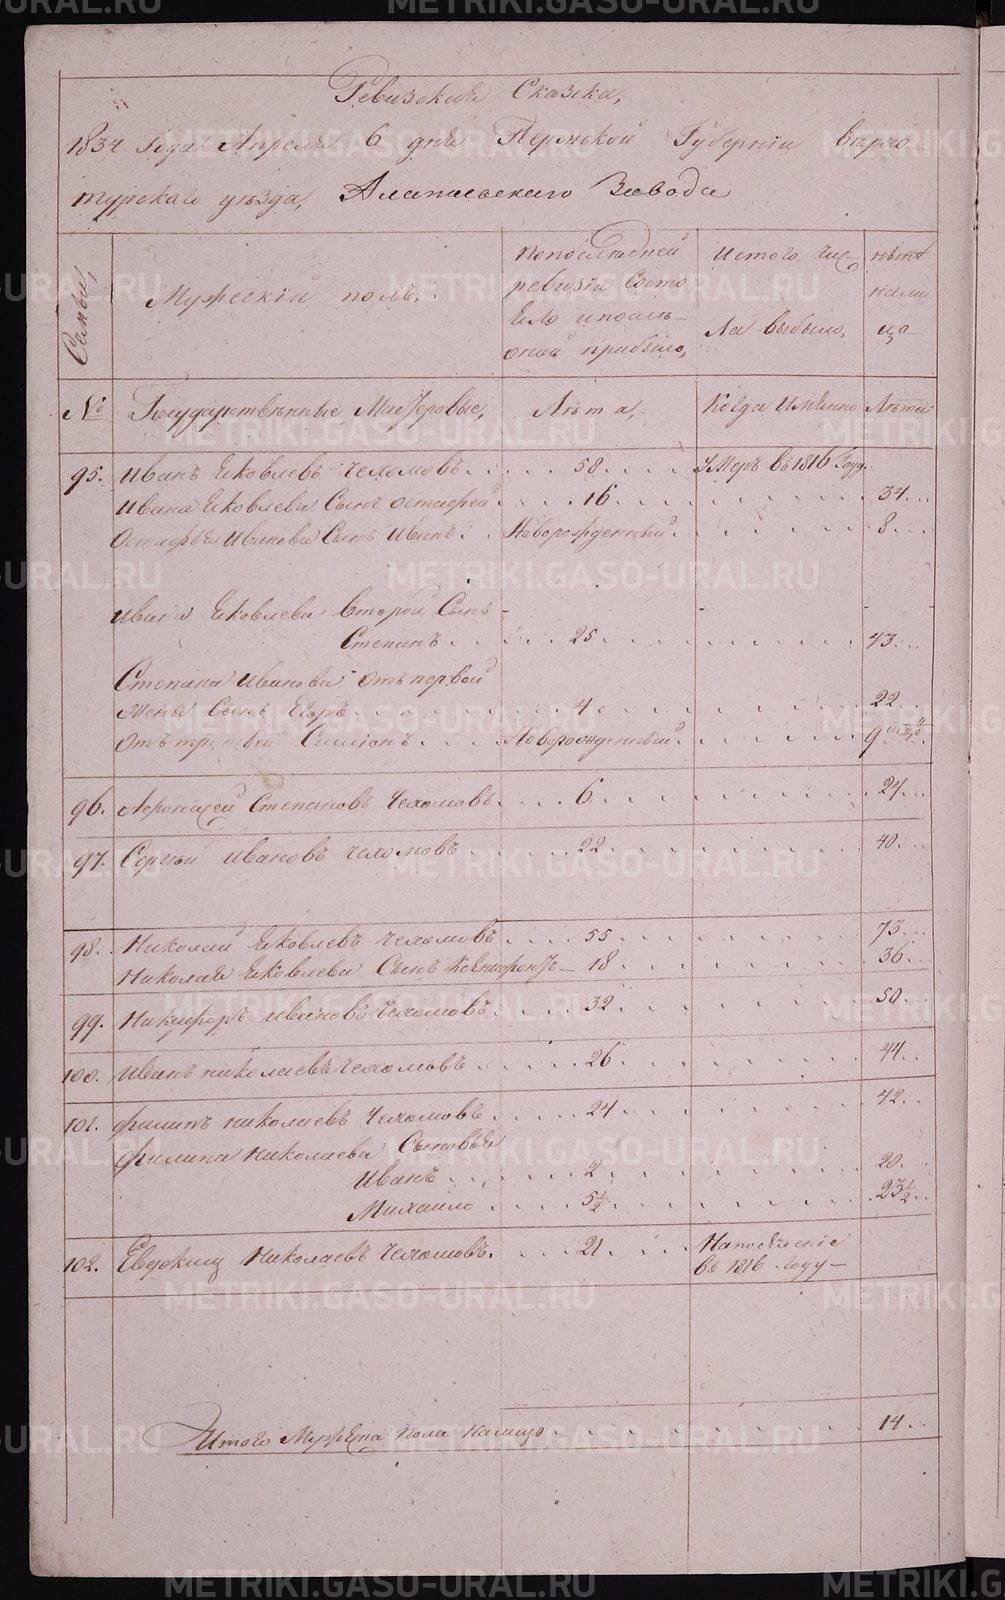 Ревизская Сказка,
1834 Года Апреля 6 дня Пермской Губернии верхо
турскаго уезда, Алапаевскаго Завода
Семьи,
Мужескій полъ.
По последней
ревизіи состо
яло и после
оной прибыло,
Истого чис
ла выбыло,
ныне
нали
цо
№
Государственные Мастеровые,
Лета,
Когда Именно
Лета
95. Иванъ Яковлевъ Чехомовъ 58 умеръ в 1816 Году.
Ивана Яковлева Сынъ Остафей 16 34
Остафья Иванова Сынъ Иванъ Новорожденный 8
Ивана Яковлева Второй Сынъ
Степанъ 25 43
Степана Иванова отъ первой
жены Сынъ Егоръ 4 22
отъ третьей Симіонъ Новорожденный 9
96. Афонасей Степановъ Чехомовъ 6 24
97. Сергей Ивановъ Чехомовъ 22 40
98. Николай Яковлевъ Чехомовъ 55 73
Николая Яковлева Сынъ Ксенофонтъ 18 36
99. Никифоръ Ивановъ Чехомовъ 32 50
100. Иванъ Николаевъ Чехомовъ 26 44
101. Филипъ Николаевъ Чехомовъ 24 42
Филипа Николаева Сыновья
Иванъ 2 20
Михаило 5½ 23½
102. Евдокимъ Николаевъ Чехомовъ 21 На поселеніе
въ 1816 Году
Итого Мужеска пола налицо 14
METRIKI.GASO-URAL.RU